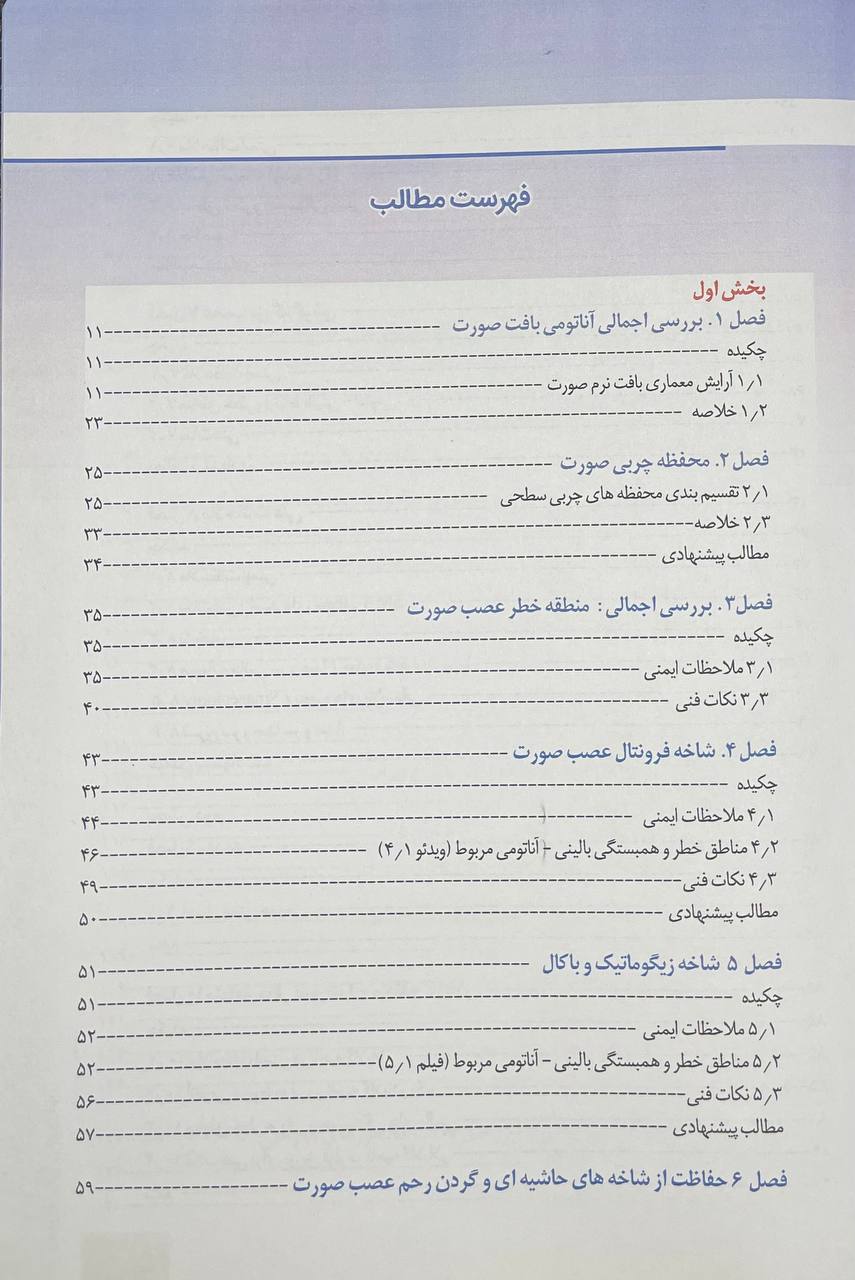 فهرست مطالب
بخش اول
فصل ۱. بررسی اجمالی آناتومی بافت صورت ----------------------------------- ۱۱
چکیده ---------------------------------------------------------------- ۱۱
۱٫۱ آرایش معماری بافت نرم صورت ---------------------------------------------- ۱۱
۱٫۲ خلاصه ------------------------------------------------------------- ۲۳
فصل ۲. محفظه چربی صورت ----------------------------------------------- ۲۵
۲٫۱ تقسیم بندی محفظه های چربی سطحی ---------------------------------------- ۲۵
۲٫۳ خلاصه-------------------------------------------------------------- ۳۳
مطالب پیشنهادی ---------------------------------------------------------- ۳۴
فصل۳. بررسی اجمالی: منطقه خطر عصب صورت ------------------------------- ۳۵
چکیده ----------------------------------------------------------------- ۳۵
۳٫۱ ملاحظات ایمنی -------------------------------------------------------- ۳۵
۳٫۳ نکات فنی ----------------------------------------------------------- ۴۰
فصل ۴. شاخه فرونتال عصب صورت ------------------------------------------- ۴۳
چکیده ----------------------------------------------------------------- ۴۳
۴٫۱ ملاحظات ایمنی ------------------------------------------------------- ۴۴
۴٫۲ مناطق خطر و همبستگی بالینی – آناتومی مربوط (ویدئو ۴٫۱) --------------------------- ۴۶
۴٫۳ نکات فنی------------------------------------------------------------ ۴۹
مطالب پیشنهادی ---------------------------------------------------------- ۵۰
فصل ۵ شاخه زیگوماتیک و باکال --------------------------------------------- ۵۱
چکیده ----------------------------------------------------------------- ۵۱
۵٫۱ ملاحظات ایمنی ------------------------------------------------------- ۵۲
۵٫۲ مناطق خطر و همبستگی بالینی – آناتومی مربوط (فیلم ۵٫۱)---------------------------- ۵۲
۵٫۳ نکات فنی------------------------------------------------------------ ۵۶
مطالب پیشنهادی ---------------------------------------------------------- ۵۷
فصل ۶ حفاظت از شاخه های حاشیه ای و گردن رحم عصب صورت -------------------- ۵۹